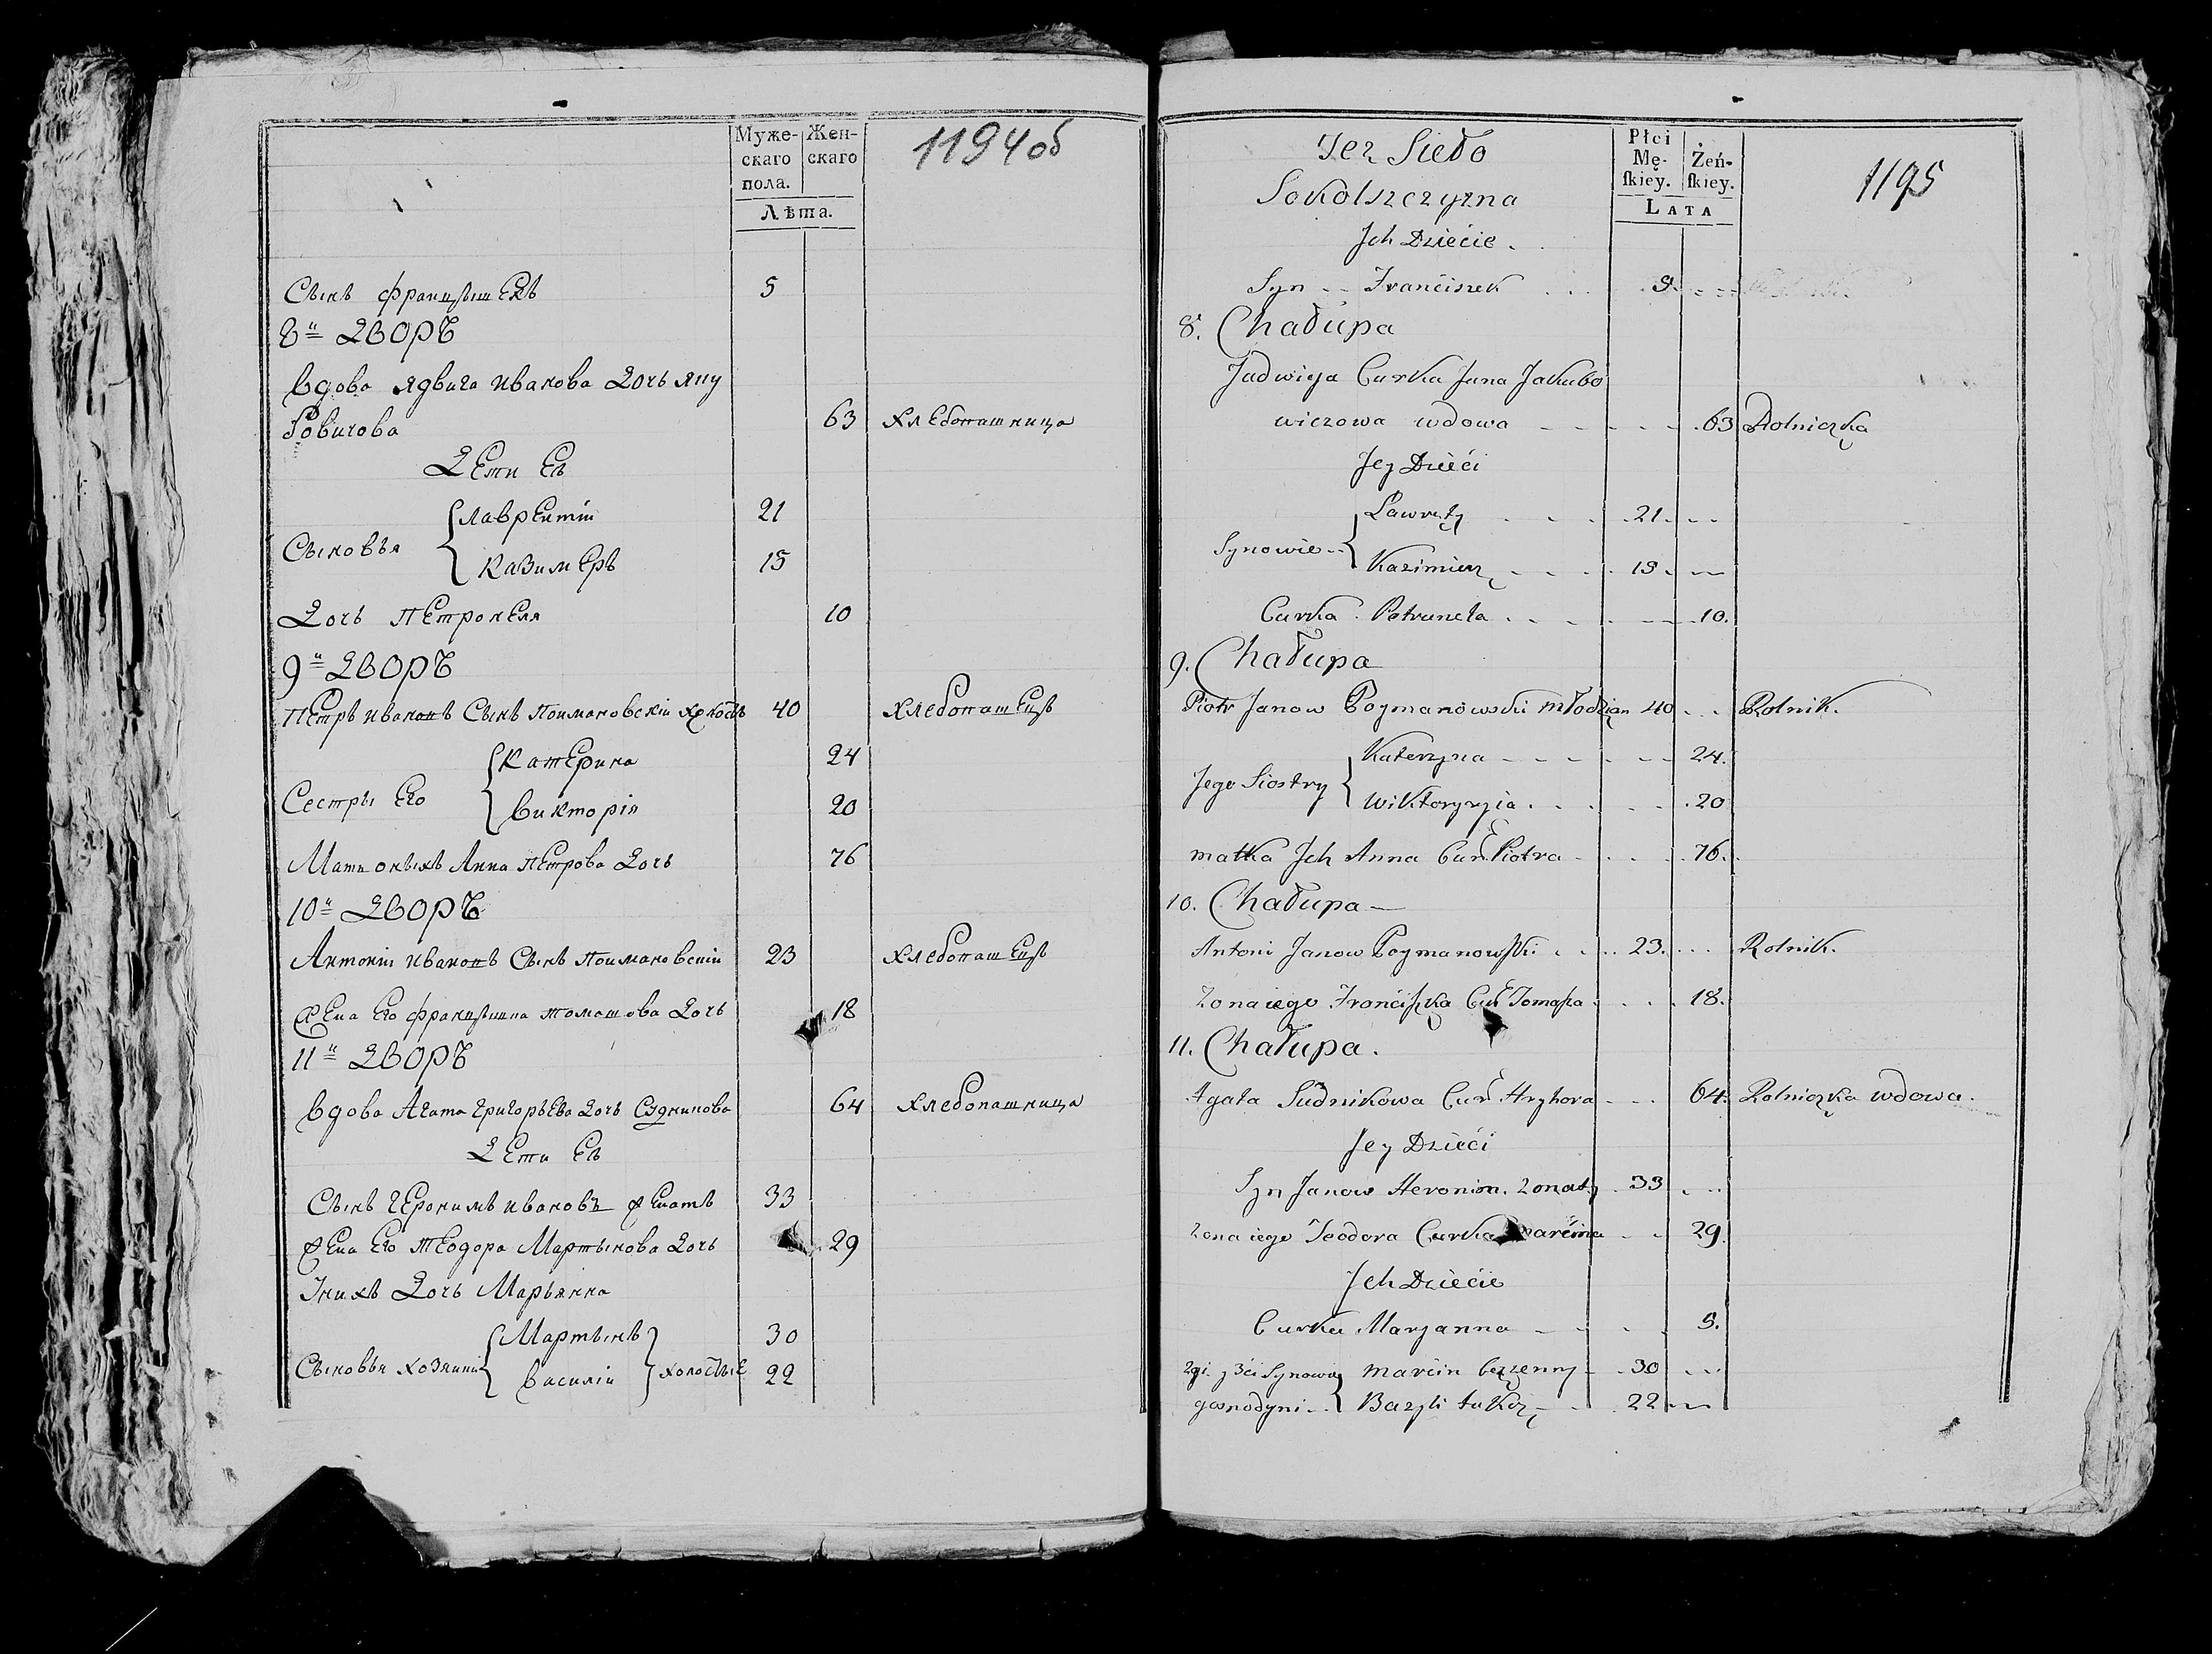 Муже-
скаго
пола.
Жен-
скаго
Лѣта.
1194 об
Сынъ Францышекъ 5
8й Дворъ
Вдова Ядвига Иванова Дочь Яку
бовичова 63 Хлебопашница
Дети Ея
Сыновья { Лаврентіи 21
Казимеръ 15
Дочь Петронеля 10
9й Дворъ
Петръ Ивановъ Сынъ Поимановскіи Холостъ 40 Хлебопашецъ
Сестры Его { Катерина 24
Викторія 20
Мать оныхъ Анна Петрова Дочь 76
10й Дворъ
Антоніи Ивановъ Сынъ Поимановскіи 23 Хлебопашецъ
Жена Его Францышка Томашова Дочь 18
11й Дворъ
Вдова Агата Григорьева Дочь Судникова 64 Хлебопашница
Дети Ея
Сынъ Геронимъ Ивановъ Женатъ 33
Жена Его Теодора Мартынова Дочь 29
У нихъ Дочь Марьянна
Сыновья Хозяини { Мартынъ } холостые 30
Василіи 22
Tez Sieło
Sokolszczyzna
Płci
Mę-
skiey.
Żeń-
skiey.
LATA
1195
Jch Dziećie
Syn Franćiszek 5
8. Chałupa
Jadwiga Curka Jana Jakubo
wiczowa wdowa 63 Rolniczka
Jey Dzieći
Synowie { Lawręty 21
Kazimierz 15
Curka Petruneła 10.
9. Chałupa
Piotr Janow Poymanowski młodzian 40 Rolnik.
Jego Siostry { Katerzyna 24.
Wiktoryzyia 20
matka Jch Anna Cur: Piotra 76.
10. Chałupa
Antoni Janow Poymanowski 23. Rolnik.
Zona iego Franćiszka Cur Tomasza 18.
11. Chałupa.
Agata Sudnikowa Cur Hryhora 64. Rolniczka wdowa.
Jey Dzieći
Syn Janow Heronim. Zonaty 33
Zona iego Teodora Curka Marćina 29.
Jch Dziećie
Curka Maryanna 5.
2gi y 3ći Synowie { Marćin bezzenny 30
gosnodyni Bazyli takze 22